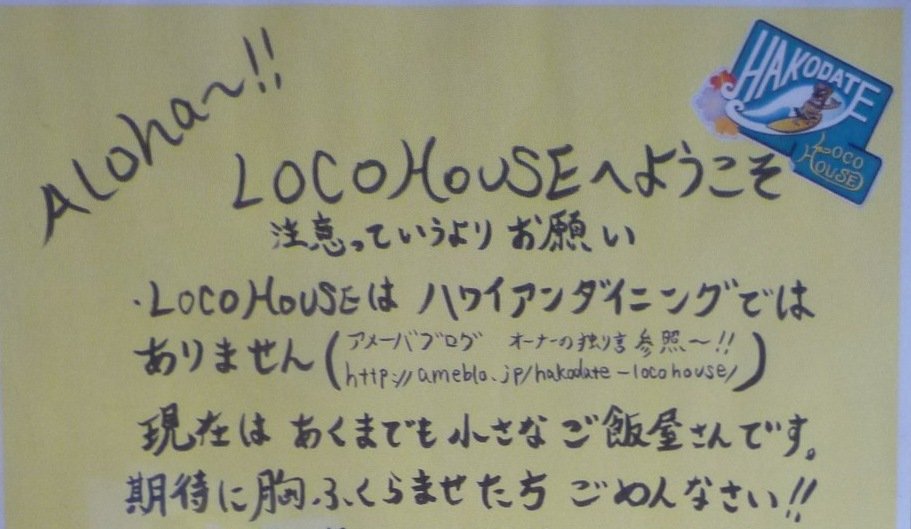 Aloha〜!!
HAKODATE
LOCO
HOUSE
LOCOHOUSEへようこそ
注意っていうより お願い
・LOCOHOUSEは ハワイアンダイニングでは
ありません(アメーバブログ オーナーの独り言 参照〜!!
http://ameblo.jp/hakodate-locohouse/)
現在は あくまでも 小さな ご飯屋さんです。
期待に胸ふくらませたち ごめんなさい!!